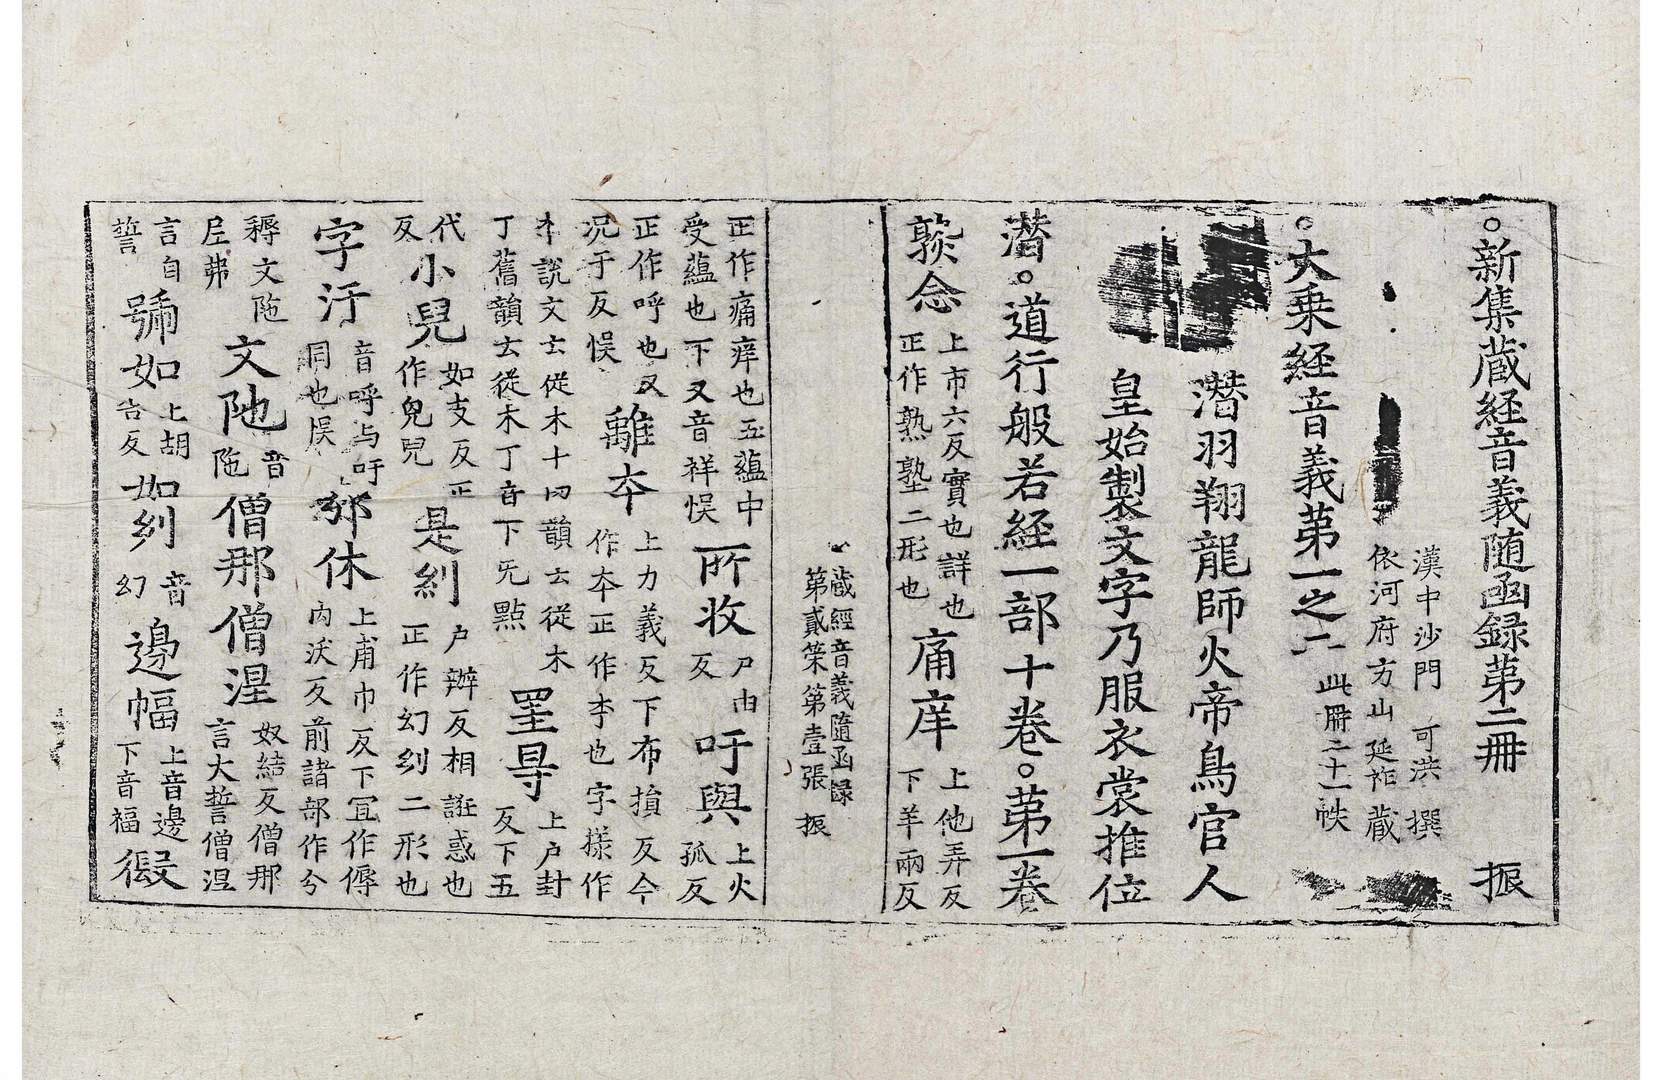 。新集蔵経音義随函録第二冊 振
漢中沙門 可洪 撰
依河府方山延祚蔵
。大乗経音義第一之二 此冊二十一帙
潜羽翔龍師火帝鳥官人
皇始製文字乃服衣裳推位
潜。道行般若経一部十巻。第一巻
念 上市六反實也詳也正作熟塾二形也 痛庠 上他弄反下羊兩反
蔵經音義随函録
第貳筞第壹張 振
正作痛痒也五蘊中受蘊也下又音祥悮 所收 尸由反 吁與 上火孤反
正作呼也又況于反悮 離夲 上力義反下布損反今作夲正作李也字樣作
說文云從木十曰韻云從木丁舊韻云從木丁音下旡點 罣㝵 上户封反下五
代反 小兒 如支反正作兒兒 是糿 户辦反相誑惑也正作幻糿二形也
字汙 音呼与吁同也悮 邠休 上甫巾反下冝作傉内沃反前諸部作兮
耨文陁尼弗 文阤 音陁 僧那僧涅 奴結反僧那言大誓僧涅
言自誓 號如 上胡告反 如糿 音幻 邊幅 上音邊下音福